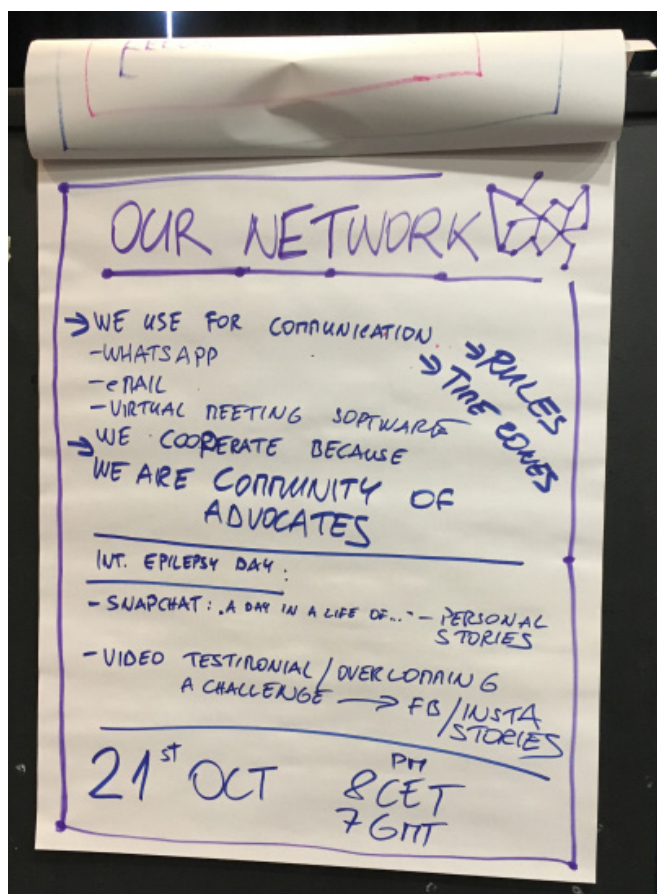 OUR NETWORK
→ WE USE FOR COMMUNICATION
- WHATSAPP
- eMAIL
- VIRTUAL MEETING SOFTWARE
→ RULES
→ TIME ZONES
→ WE COOPERATE BECAUSE
WE ARE COMMUNITY OF
ADVOCATES
INT. EPILEPSY DAY:
- SNAPCHAT: "A DAY IN A LIFE OF..." - PERSONAL
STORIES
- VIDEO TESTIMONIAL / OVERCOMMING
A CHALLENGE → FB / INSTA
STORIES
21st OCT
PM
8 CET
7 GMT